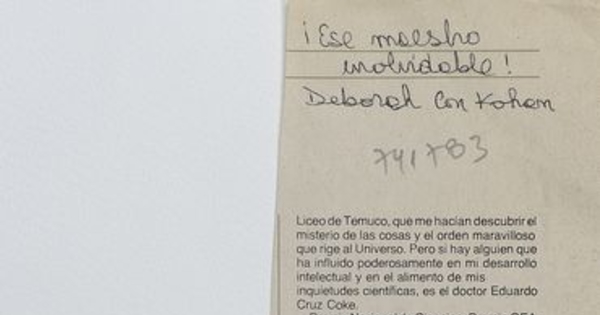 ¡Ese maestro
inolvidable!
Deborah Con Kohan
741783
Liceo de Temuco, que me hacían descubrir el
misterio de las cosas y el orden maravilloso
que rige al Universo. Pero si hay alguien que
ha influido poderosamente en mi desarrollo
intelectual y en el alimento de mis
inquietudes científicas, es el doctor Eduardo
Cruz Coke.